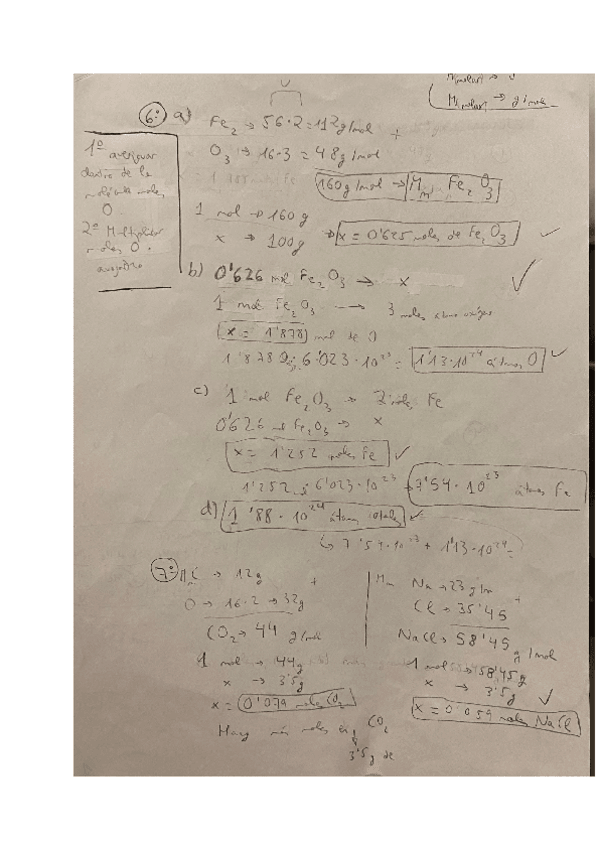 Mmolar → g/mol
6º a) Fe₂ → 56·2 = 112g/mol +
O₃ → 16·3 = 48g/mol
160g/mol → Mm Fe₂O₃
1º averiguar
dentro de la
molécula moles
O
2º Multiplicar
moles O ·
avogadro
1 mol → 160g
x → 100g → x = 0'625 moles de Fe₂O₃
b) 0'626 mol Fe₂O₃ → x
1 mol Fe₂O₃ → 3 moles átomos oxígeno
x = 1'878 mol de O
6'023·10²³ = 1'13·10²⁴ átomos O
c) 1 mol Fe₂O₃ → 2 moles Fe
0'626 mol Fe₂O₃ → x
x = 1'252 moles Fe
1'252 · 6'023·10²³ → 7'54·10²³ átomos Fe
d) 1'88·10²⁴ átomos totales
↳ 7'54·10²³ + 1'13·10²⁴ =
7º C → 12g +
O → 16·2 → 32g
CO₂ → 44 g/mol
1 mol → 44g
x → 3'5g
x = 0'079 moles CO₂
Hay más moles en CO₂
3'5g de
Na → 23 g/m +
Cl → 35'45
NaCl → 58'45 g/mol
1 mol → 58'45g
x → 3'5g
x = 0'059 moles NaCl